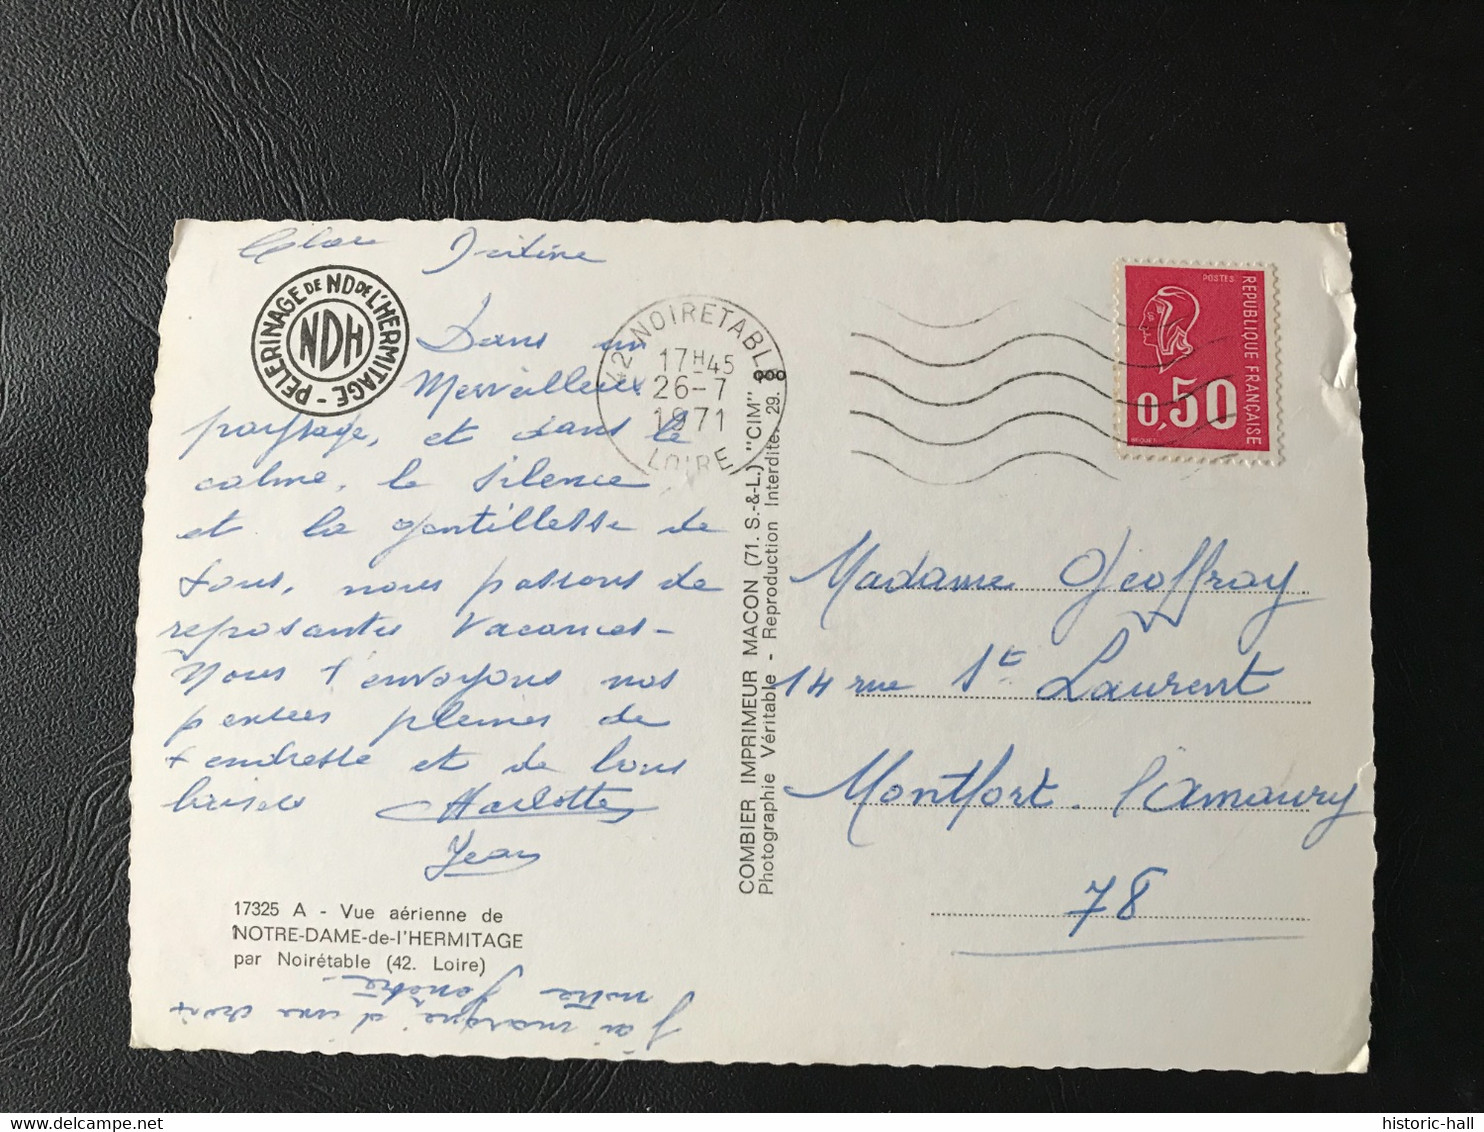 Dans un
Merveilleux
paysage, et dans le
calme, le silence
et la gentillesse de
tous, nous passons de
reposantes Vacances -
Nous t'envoyons nos
pensées pleines de
tendresse et de bons
baisers Charlotte
Jean
PELERINAGE DE ND DE L'HERMITAGE -
NDH
17325 A - Vue aérienne de
NOTRE-DAME-de-l'HERMITAGE
par Noirétable (42. Loire)
j'ai marqué d'une croix
notre fenêtre -
42 NOIRETABLE
17H45
26-7
1971
LOIRE
COMBIER IMPRIMEUR MACON (71. S.-&-L.) "CIM"
Photographie Véritable - Reproduction Interdite. 29.
POSTES
REPUBLIQUE FRANÇAISE
0,50
Madame Geoffray
14 rue St Laurent
Montfort l'Amaury
78
historic-hall